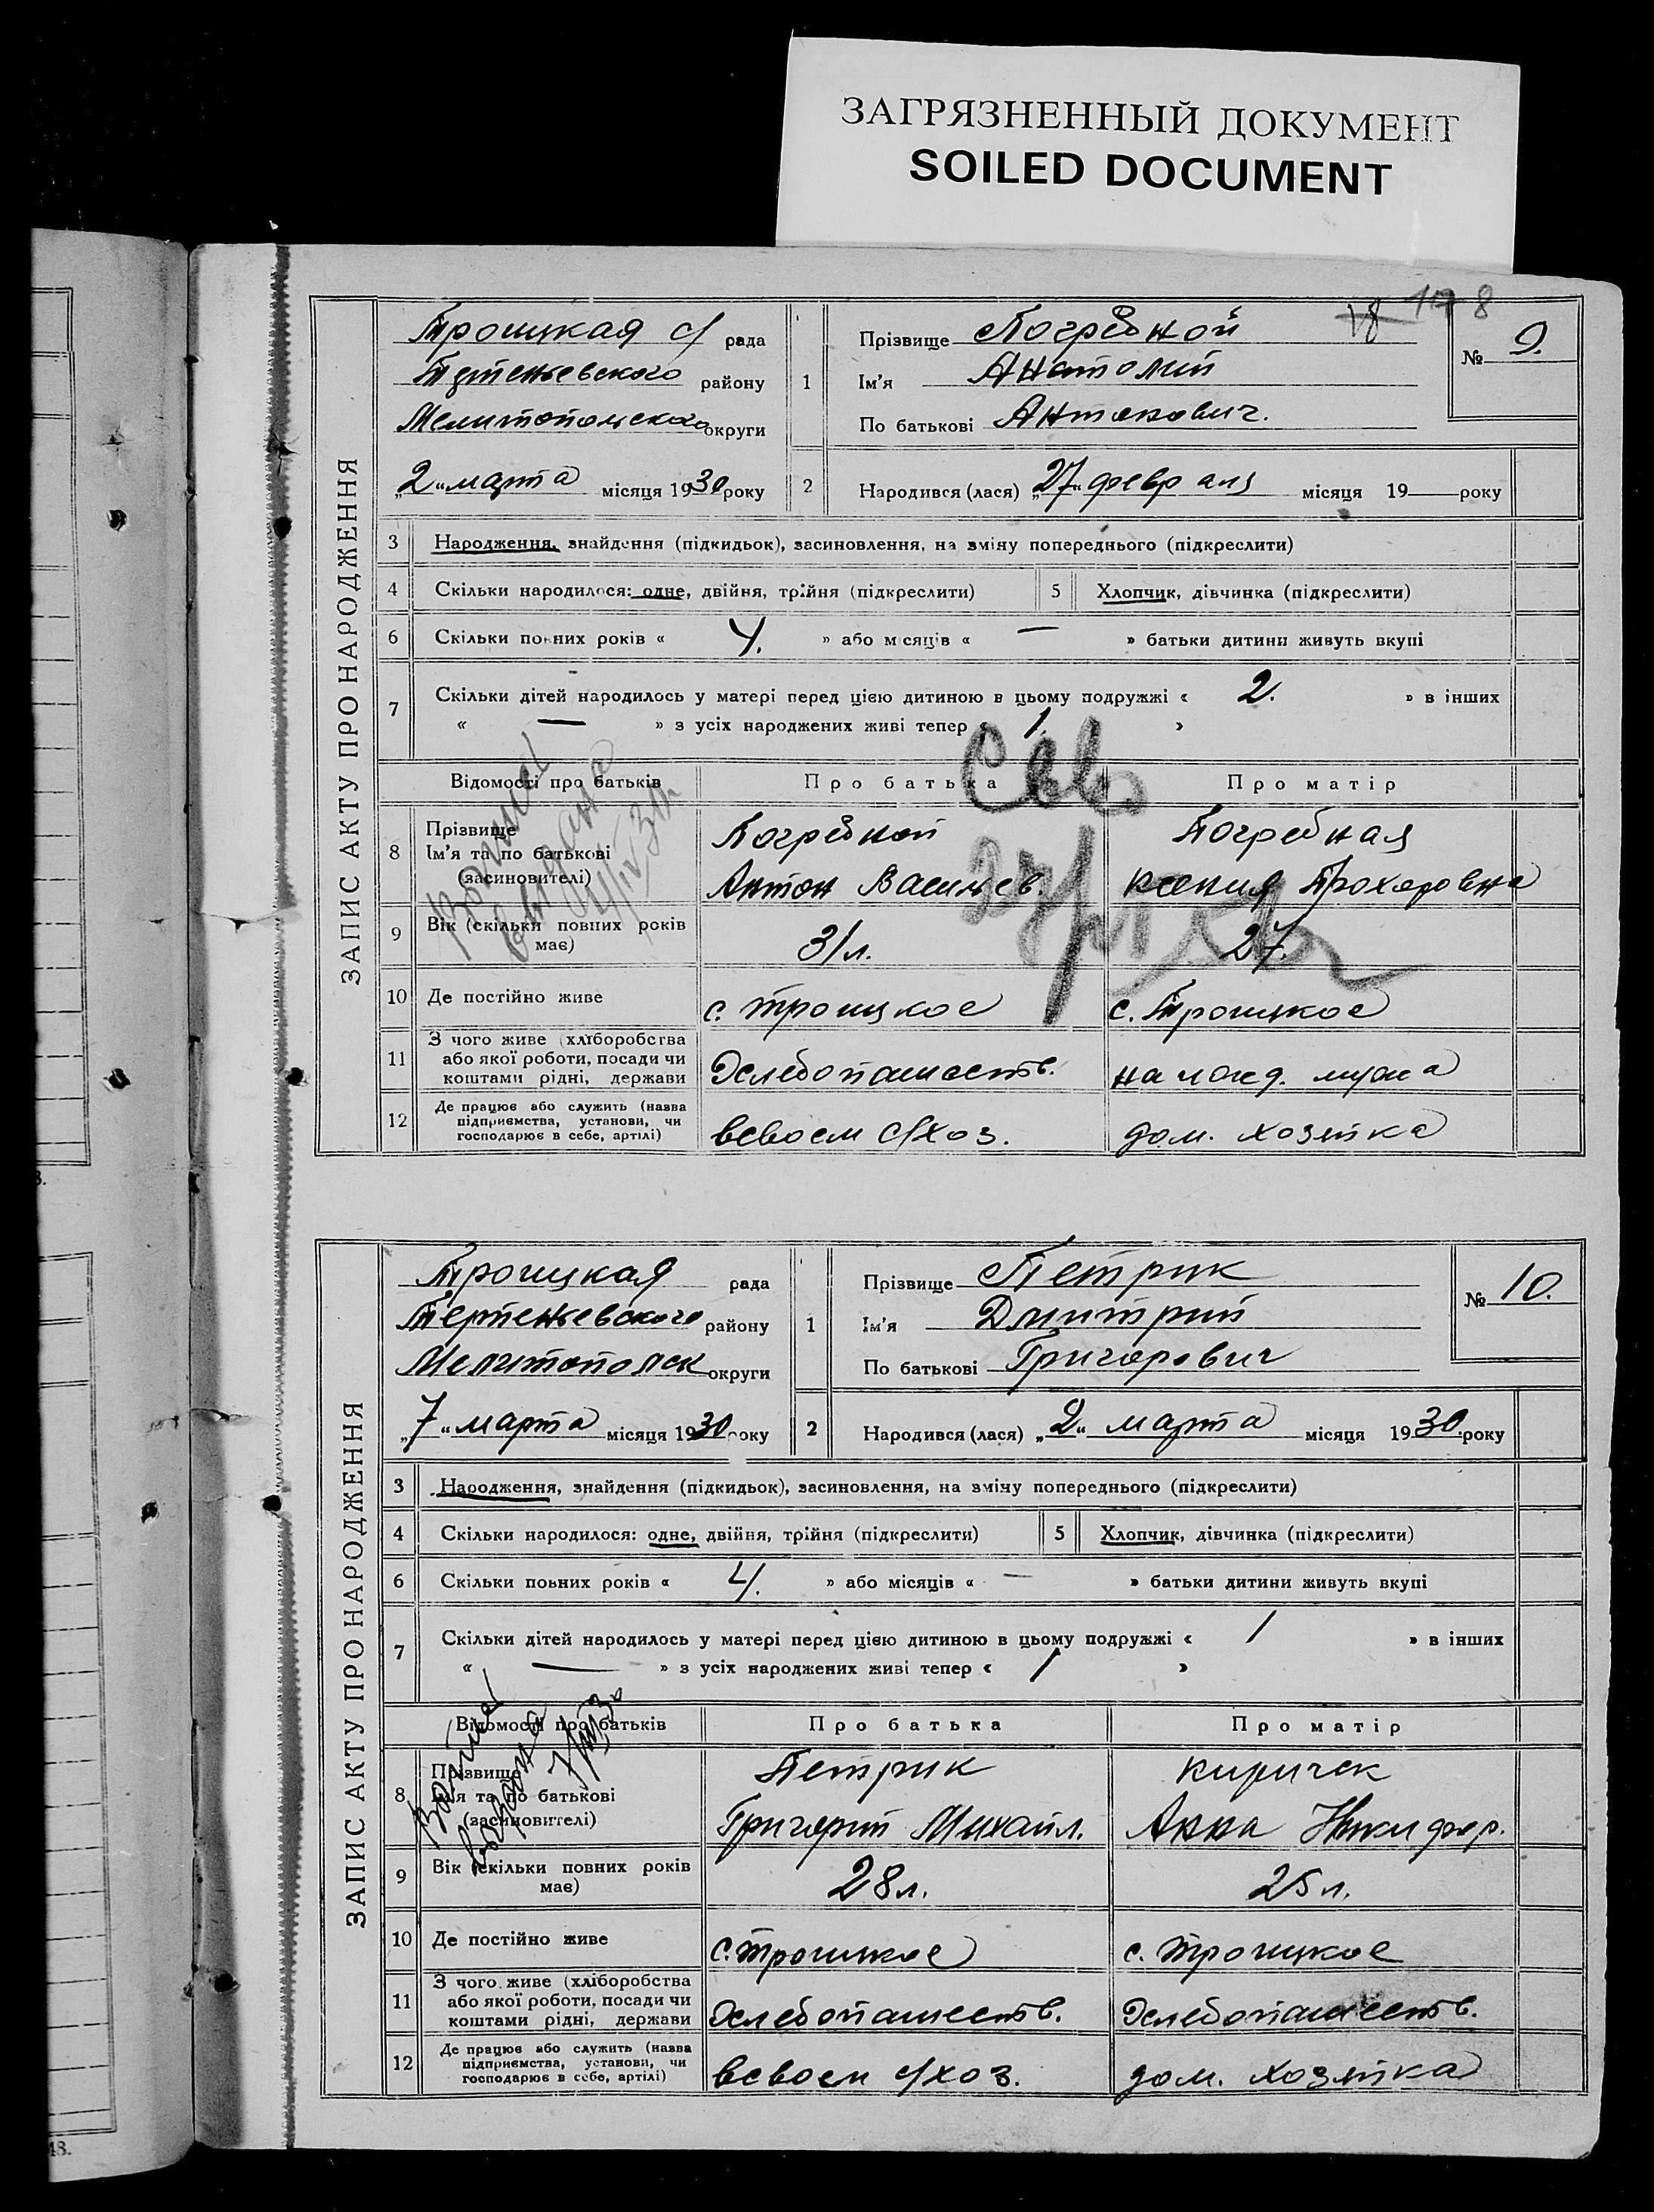 ЗАГРЯЗНЕННЫЙ ДОКУМЕНТ
SOILED DOCUMENT
ЗАПИС АКТУ ПРО НАРОДЖЕННЯ
Троицкая с/ рада
района району
Мелитопольского округи
„2„ марта місяця 1930 року
1
Прізвище Погребной
Ім'я Анатолий
По батькові Антонович.
18
№ 9.
2 Народився (лася) „27„ февраля місяця 19— року
3 Народження, знайдення (підкидьок), засиновлення, на зміну попереднього (підкреслити)
4 Скільки народилося: одне, двійня, трійня (підкреслити) 5 Хлопчик, дівчинка (підкреслити)
6 Скільки повних років « 4. » або місяців « — » батьки дитини живуть вкупі
7 Скільки дітей народилось у матері перед цією дитиною в цьому подружжі « 2. » в інших
« — » з усіх народжених живі тепер « 1. »
Відомості про батьків Про батька Про матір
8 Прізвище Ім'я та по батькові (засиновителі)
Погребной Погребная
Антон Васильев. Ксения Прохоровна
9 Вік (скільки повних років має) 31 л. 27.
10 Де постійно живе с. Троицкое с. Троицкое
11 З чого живе (хліборобства або якої роботи, посади чи коштами рідні, держави Хлебопашеств. на ижд. мужа
12 Де працює або служить (назва підприємства, установи, чи господарює в себе, артілі) всвоем с/хоз. дом. хозяйка
ЗАПИС АКТУ ПРО НАРОДЖЕННЯ
Троицкая рада
району
Мелитопольск округи
„7„ марта місяця 1930 року
1
Прізвище Петрик
Ім'я Дмитрий
По батькові Григорович
№ 10.
2 Народився (лася) „2„ марта місяця 1930. року
3 Народження, знайдення (підкидьок), засиновлення, на зміну попереднього (підкреслити)
4 Скільки народилося: одне, двійня, трійня (підкреслити) 5 Хлопчик, дівчинка (підкреслити)
6 Скільки повних років « 4. » або місяців « — » батьки дитини живуть вкупі
7 Скільки дітей народилось у матері перед цією дитиною в цьому подружжі « 1 » в інших
« — » з усіх народжених живі тепер « 1 »
Відомості про батьків Про батька Про матір
8 Прізвище Ім'я та по батькові (засиновителі)
Петрик Киричек
Григорий Михайл. Анна Никифор.
9 Вік (скільки повних років має) 28 л. 25 л.
10 Де постійно живе с. Троицкое с. Троицкое
11 З чого живе (хліборобства або якої роботи, посади чи коштами рідні, держави Хлебопашеств. Хлебопашеств.
12 Де працює або служить (назва підприємства, установи, чи господарює в себе, артілі) всвоем с/хоз. дом. хозяйка